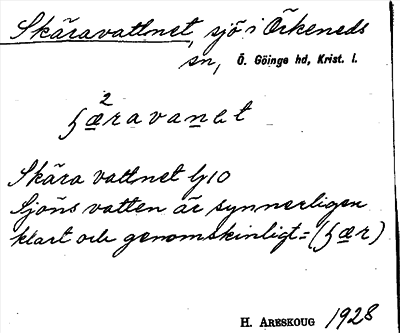 Skäravattnet, sjö i Örkeneds
sn, Ö. Göinge hd, Krist. l.
2
ʃæravanet
Skära vattnet 1/10
Sjöns vatten är synnerligen
klart och genomskinligt = (ʃær)
H. Areskoug 1928